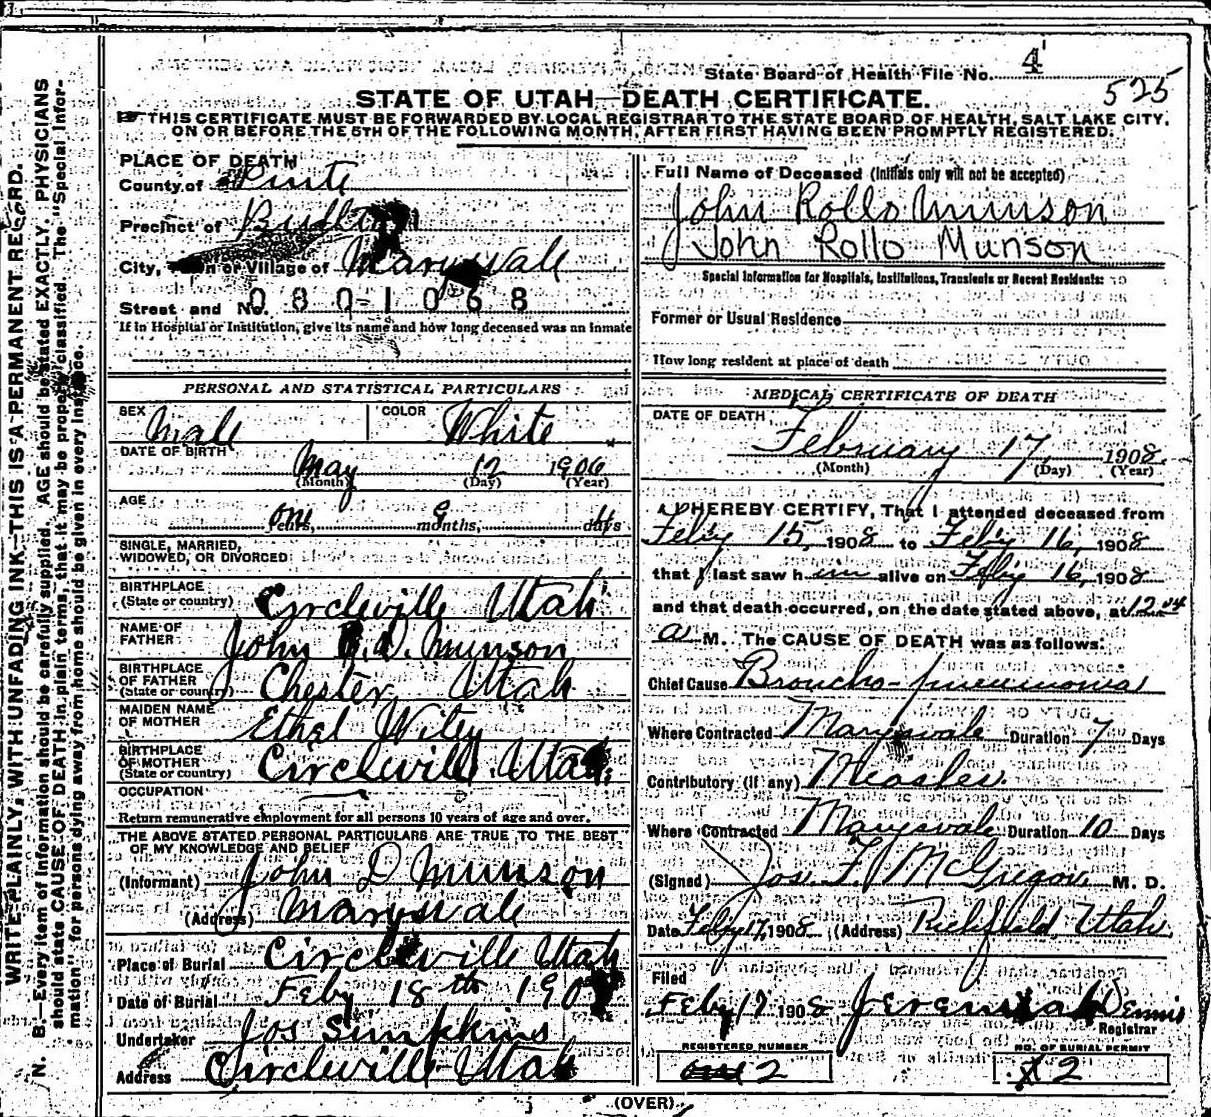 State Board of Health File No. 4
525
STATE OF UTAH—DEATH CERTIFICATE.
THIS CERTIFICATE MUST BE FORWARDED BY LOCAL REGISTRAR TO THE STATE BOARD OF HEALTH, SALT LAKE CITY,
ON OR BEFORE THE 5TH OF THE FOLLOWING MONTH, AFTER FIRST HAVING BEEN PROMPTLY REGISTERED.
PLACE OF DEATH
County of Piute
Precinct of
City, Town or Village of Marysvale
Street and No. 080-1068
If in Hospital or Institution, give its name and how long deceased was an inmate
Full Name of Deceased (Initials only will not be accepted)
John Rollo Munson
John Rollo Munson
Special Information for Hospitals, Institutions, Transients or Recent Residents:
Former or Usual Residence
How long resident at place of death
PERSONAL AND STATISTICAL PARTICULARS
SEX Male COLOR White
DATE OF BIRTH May 12 1906
(Month) (Day) (Year)
AGE one Years, 9 months, 4 days
SINGLE, MARRIED,
WIDOWED, OR DIVORCED
BIRTHPLACE
(State or country) Circleville Utah
NAME OF
FATHER John R.D. Munson
BIRTHPLACE
OF FATHER
(State or country) Chester, Utah
MAIDEN NAME
OF MOTHER Ethel Wiley
BIRTHPLACE
OF MOTHER
(State or country) Circleville, Utah
OCCUPATION
Return remunerative employment for all persons 10 years of age and over.
THE ABOVE STATED PERSONAL PARTICULARS ARE TRUE TO THE BEST
OF MY KNOWLEDGE AND BELIEF
(Informant) John D Munson
(Address) Marysvale
Place of Burial Circleville Utah
Date of Burial Feby 18th 190
Undertaker Jos Simpkins
Address Circleville Utah
MEDICAL CERTIFICATE OF DEATH
DATE OF DEATH
February 17, 1908
(Month) (Day) (Year)
I HEREBY CERTIFY, That I attended deceased from
Feb'y 15, 1908 to Feb'y 16, 1908
that I last saw him alive on Feb'y 16, 1908
and that death occurred, on the date stated above, at 12.04
a M. The CAUSE OF DEATH was as follows:
Chief Cause Broncho-pneumonia
Where Contracted Marysvale Duration 7 Days
Contributory (if any) Measles
Where Contracted Marysvale Duration 10 Days
(Signed) Jos. F. McGregor, M. D.
Date Feby 17, 1908 (Address) Richfield, Utah
Filed
Feby 17 1908 Jeremiah Dennis
Registrar
REGISTERED NUMBER
2
NO. OF BURIAL PERMIT
2
(OVER)
WRITE PLAINLY, WITH UNFADING INK—THIS IS A PERMANENT RECORD.
N. B.—Every item of information should be carefully supplied. AGE should be stated EXACTLY. PHYSICIANS
should state CAUSE OF DEATH in plain terms, that it may be properly classified. The "Special Infor-
mation" for persons dying away from home should be given in every instance.